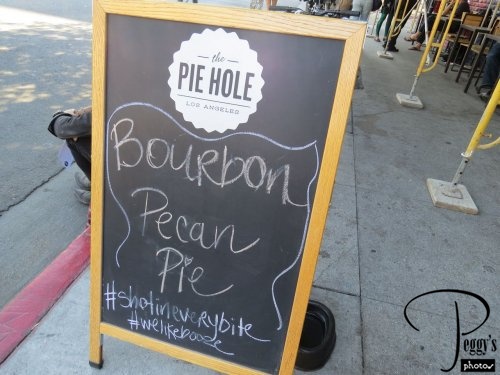 the
PIE HOLE
LOS ANGELES
Bourbon
Pecan
Pie
#shotineverybite
#welikebooze
Peggy's
photos